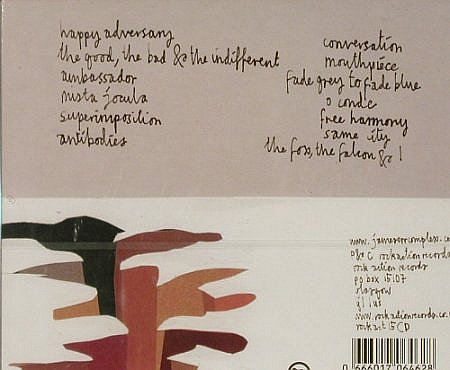 happy adversary
the good, the bad & the indifferent
ambassador
mista jocula
superimposition
antibodies
conversation
mouthpiece
fade grey to fade blue
o conde
free harmony
same city
the fox, the falcon & I
www.jamesorrcomplex.co
℗ & © rock action records
rock action records
po box 15107
glasgow
g1 1us
www.rockactionrecords.co.
rockact15CD
0 666017 064628